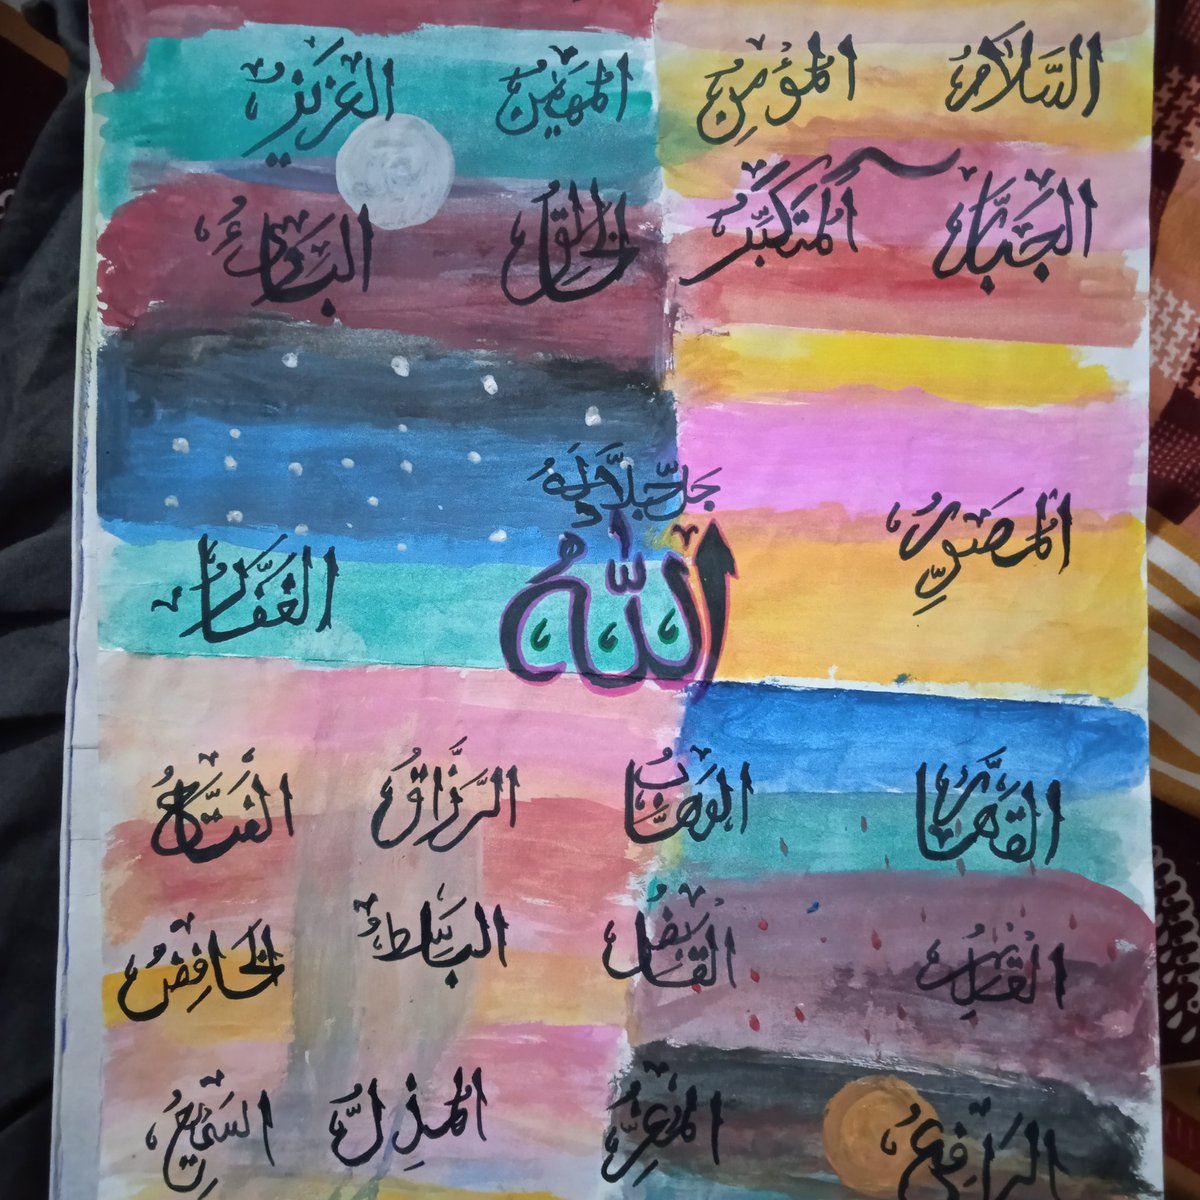 السَّلَامُ المُؤْمِنُ المُهَيْمِنُ العَزِيزُ
الجَبَّارُ المُتَكَبِّرُ الخَالِقُ البَارِئُ
جَلَّ جَلَالَهُ
اللّٰهُ
المُصَوِّرُ الغَفَّارُ
القَهَّارُ الوَهَّابُ الرَّزَّاقُ الفَتَّاحُ
القَابِضُ البَاسِطُ الخَافِضُ
الرَافِعُ المُعِزُّ المُذِلُّ السَمِيعُ